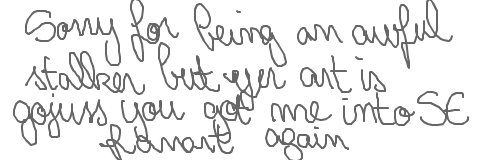 Sorry for being an awful
stalker but yer art is
gojuss you got me into SE
fanart again